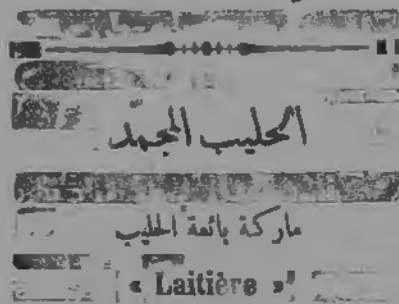 الحليب المجمّد
ماركة بائعة الحليب
« Laitière »